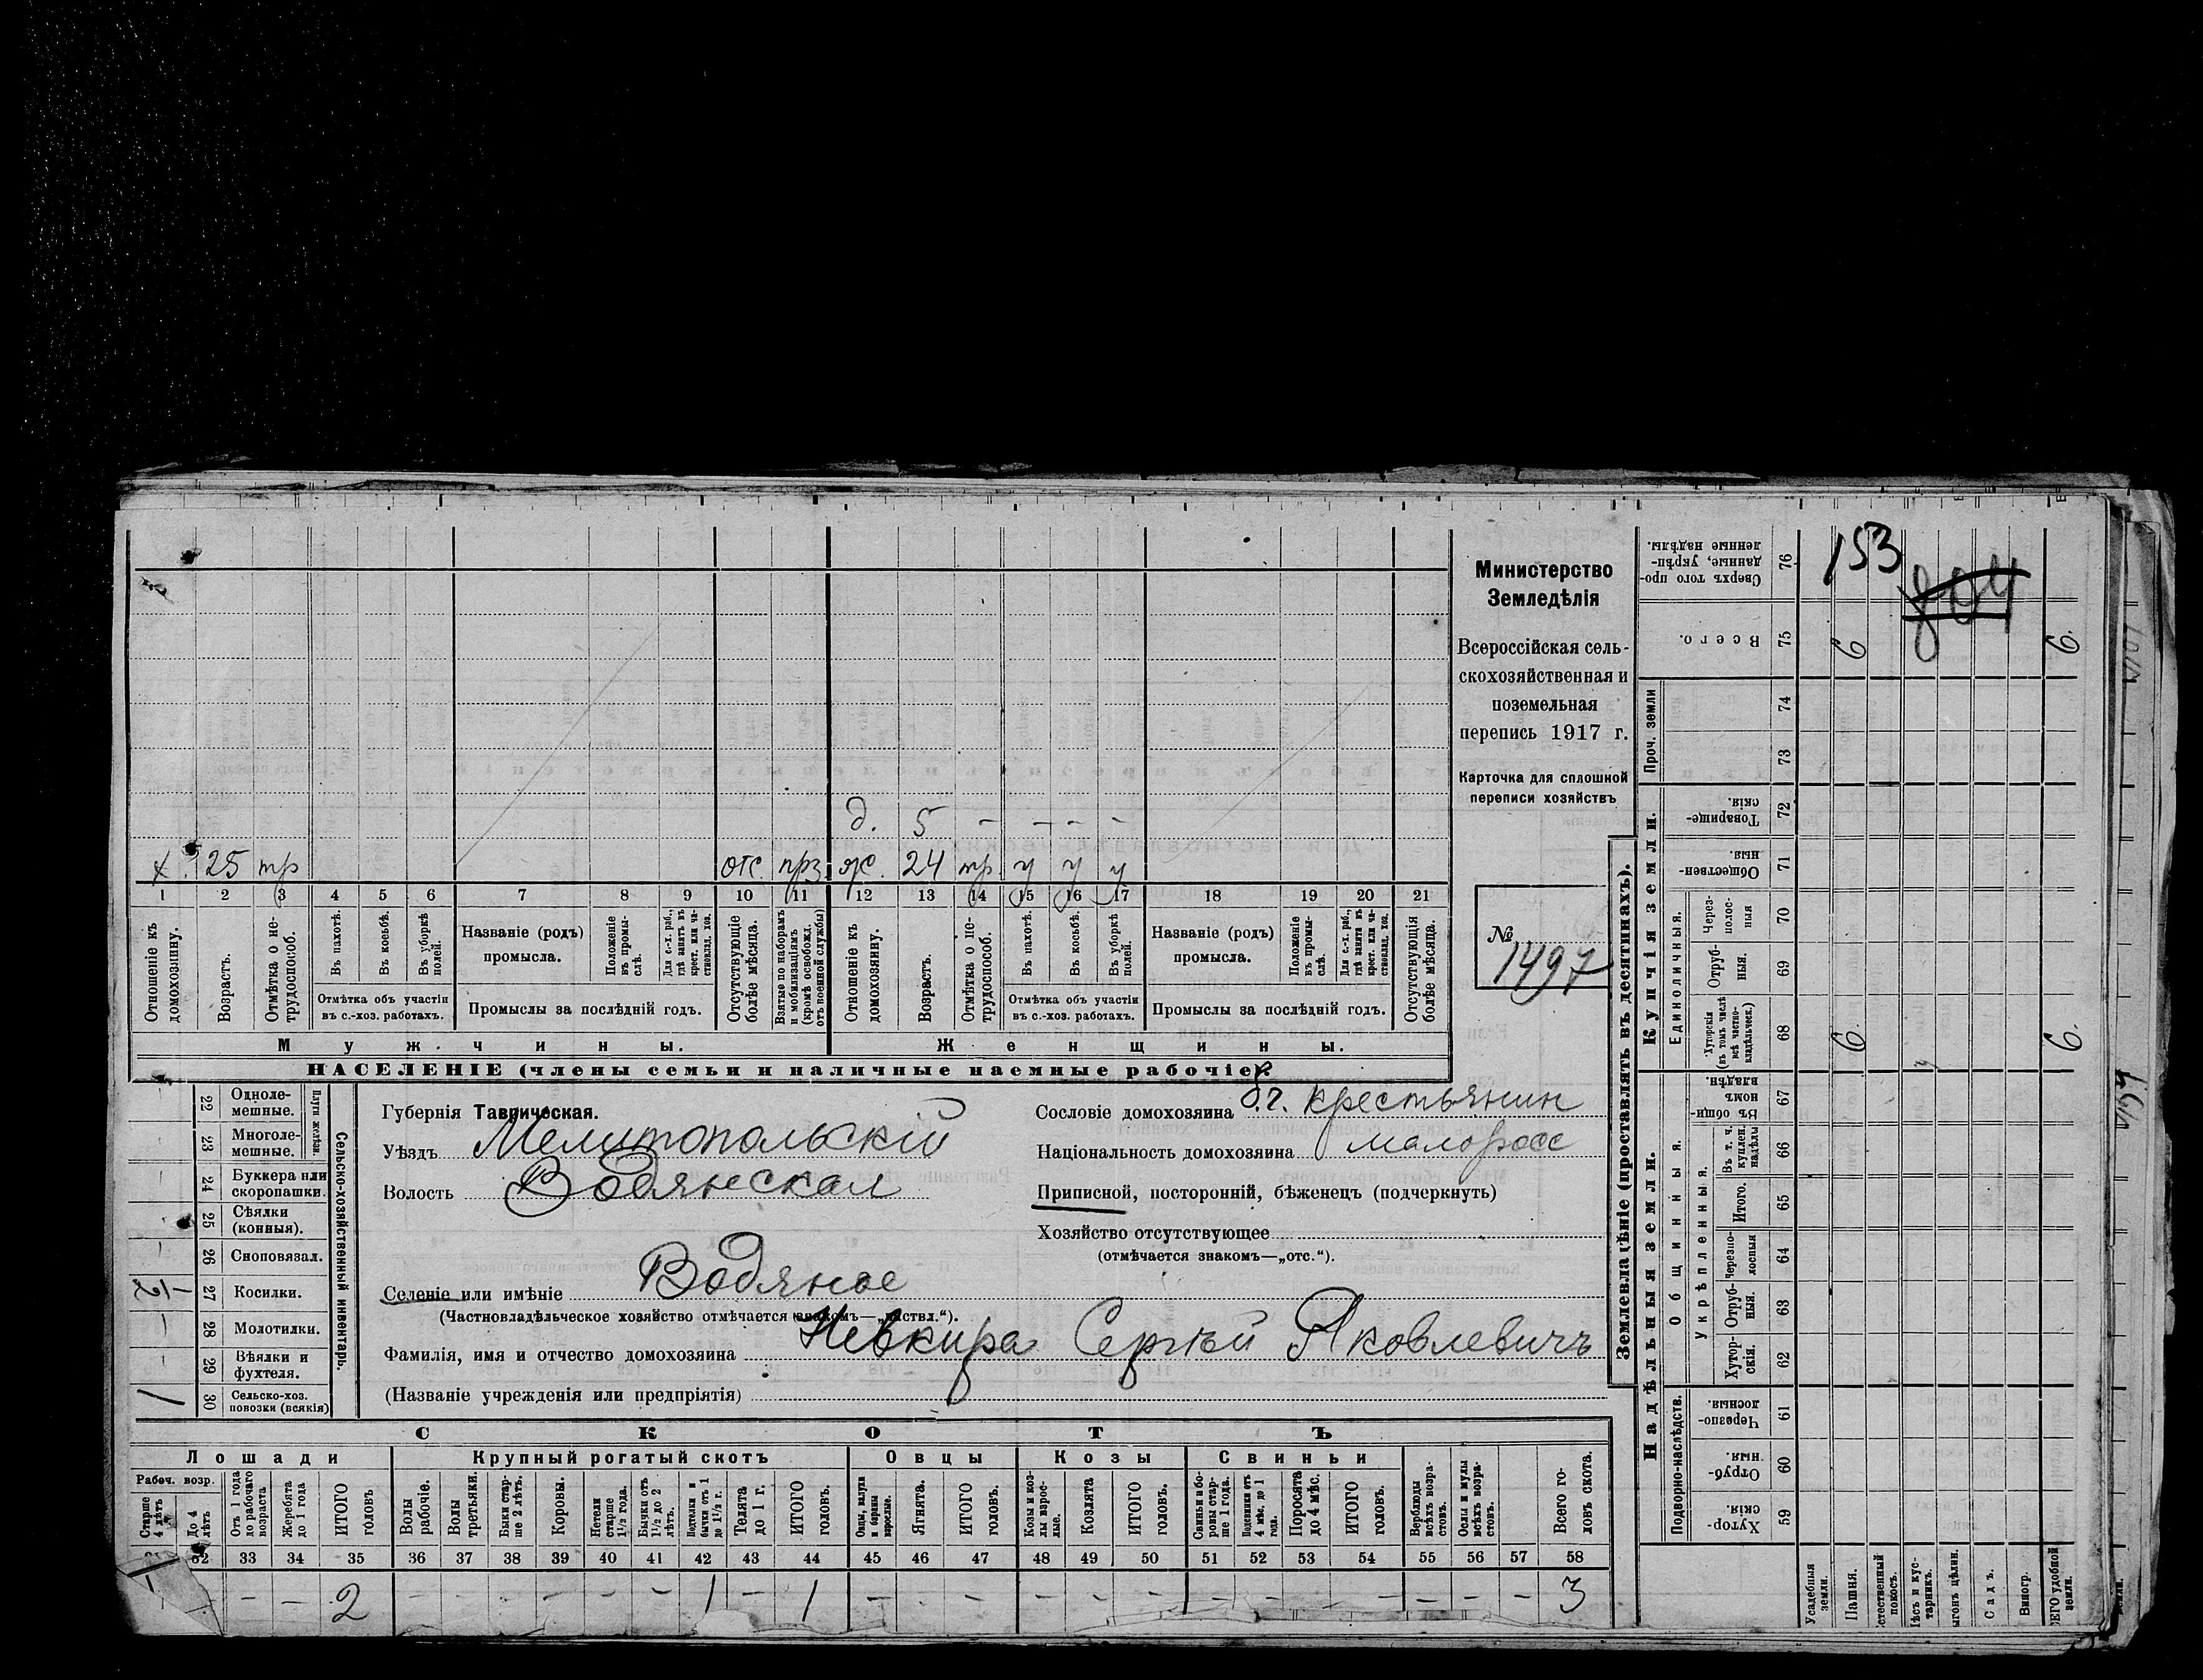 153
804
Министерство
Земледѣлія
Всероссійская сель-
скохозяйственная и
поземельная
перепись 1917 г.
Карточка для сплошной
переписи хозяйствъ
№
1497
д. 5 – – – –
х. 25 тр отс. прз. ж. 24 тр у у у
1 2 3 4 5 6 7 8 9 10 11 12 13 14 15 16 17 18 19 20 21
Отношеніе къ домохозяину.
Возрастъ.
Отмѣтка о не-трудоспособ.
Въ пахотѣ.
Въ косьбѣ.
Въ уборкѣ полей.
Названіе (родъ)
промысла.
Положеніе въ промы-слѣ.
Для с.-х. раб., гдѣ занятъ въ крест. или ча-стновлад. хоз.
Отсутствующіе болѣе мѣсяца.
Взятые по наборамъ и мобилизаціямъ (кромѣ освобожд. отъ военной службы)
Отношеніе къ домохозяину.
Возрастъ.
Отмѣтка о не-трудоспособ.
Въ пахотѣ.
Въ косьбѣ.
Въ уборкѣ полей.
Названіе (родъ)
промысла.
Положеніе въ промы-слѣ.
Для с.-х. раб., гдѣ занята въ крест. или ча-стновлад. хоз.
Отсутствующія болѣе мѣсяца.
Отмѣтка объ участіи
въ с.-хоз. работахъ.
Промыслы за послѣдній годъ.
Отмѣтка объ участіи
въ с.-хоз. работахъ.
Промыслы за послѣдній годъ.
Мужчины.
Женщины.
НАСЕЛЕНІЕ (члены семьи и наличные наемные рабочіе).
Сельско-хозяйственный инвентарь.
Плуги желѣзн.
22 Одноле-мешные.
23 Многоле-мешные.
24 Буккера или скоропашки.
25 Сѣялки (конныя).
26 Сноповязал.
27 Косилки. 1/2
28 Молотилки.
29 Вѣялки и фухтеля.
30 Сельско-хоз. повозки (всякія) 1
Губернія Таврическая.
Уѣздъ Мелитопольскій
Волость Водянская
Селеніе или имѣніе Водяное
(Частновладѣльческое хозяйство отмѣчается знакомъ—„частвл.“).
Фамилія, имя и отчество домохозяина Невкира Сергѣй Яковлевичъ
(Названіе учрежденія или предпріятія)
Сословіе домохозяина крестьянин
Національность домохозяина малоросс
Приписной, посторонній, бѣженецъ (подчеркнуть)
Хозяйство отсутствующее
(отмѣчается знакомъ—„отс.“).
СКОТЪ
Лошади Крупный рогатый скотъ Овцы Козы Свиньи
Рабоч. возр.
Старше 4 лѣтъ
До 4 лѣтъ
Отъ 1 года до рабочаго возраста
Жеребята до 1 года
ИТОГО головъ
Волы рабочіе.
Волы третьяки.
Быки стар-ше 2 лѣтъ.
Коровы.
Нетели старше 1½ года.
Бычки отъ 1½ до 2 лѣтъ.
Подтелки и бычки отъ 1 до 1½ г.
Телята до 1 г.
ИТОГО головъ.
Овцы, валухи и бараны взрослые.
Ягнята.
ИТОГО головъ.
Козы и коз-лы взрос-лые.
Козлята
ИТОГО головъ.
Свиньи и бо-ровы стар-ше 1 года.
Подсвинки отъ 4 мѣс. до 1 года.
Поросята до 4 мѣс.
ИТОГО головъ.
Верблюды всѣхъ возра-стовъ.
Ослы и мулы всѣхъ возра-стовъ.
Всего го-ловъ скота.
32 33 34 35 36 37 38 39 40 41 42 43 44 45 46 47 48 49 50 51 52 53 54 55 56 57 58
– – – 2 – – – – – – 1 – 1 – – – – – – – – – – – – – 3
Землевладѣніе (проставлять въ десятинахъ).
Надѣльныя земли.
Купчія земли.
Подворно-наслѣдств.
Общинныя.
Укрѣпленныя.
Единоличныя.
Проч. земли
Хутор-скія. 59
Отруб-ныя. 60
Черезпо-лосныя 61
Хутор-скія. 62
Отруб-ныя. 63
Черезпо-лосныя 64
Итого. 65
Въ т. ч. куплен. надѣлы 66
Въ общи-номъ владѣн. 67
Хуторскія (въ томъ числѣ всѣ частно-владѣльческ.) 68 6. 6.
Отруб-ныя. 69
Через-полос-ныя 70
Обществен-ныя. 71
Товарище-скія. 72
73
74
Всего. 75 6 6.
Сверхъ того про-данные, укрѣп-ленные надѣлы. 76
Усадебныя земли.
Пашня.
Садъ.
Виногр.